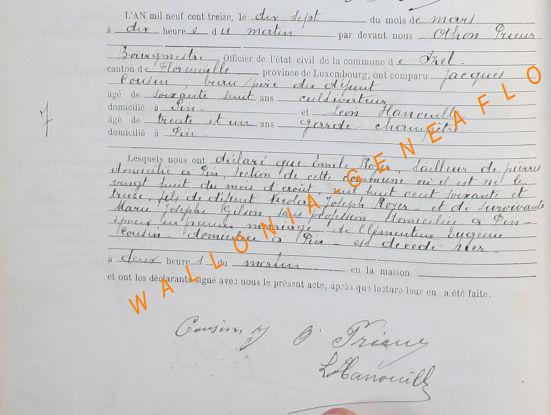 L'AN mil neuf cent treize, le dix sept du mois de mars
à dix heures du matin par devant nous Othon Prieur
Bourgmestre Officier de l'état civil de la commune de Izel
canton de Florenville province de Luxembourg, ont comparu Jacques
Cousin, beau père du défunt
âgé de soixante huit ans cultivateur
domicilié à Pin et Léon Hanouille
âgé de trente et un ans garde champêtre
domicilié à Pin
7
Lesquels nous ont déclaré que Emile Roger, tailleur de pierres
domicilié à Pin, section de cette commune où il est né le
vingt huit du mois d'août, mil huit cent soixante et
treize, fils de défunt Nicolas Joseph Roger et de survivante
Marie Josèphe Gilson sans profession domiciliée à Pin
époux en premier mariage de Clémentine Eugénie
Cousin domiciliée à Pin est décédé hier
à deux heures du matin en la maison
et ont les déclarants signé avec nous le présent acte, après que lecture leur en a été faite.
Cousin J O Prieur
L Hanouille
WALLONIA GENEAFLO